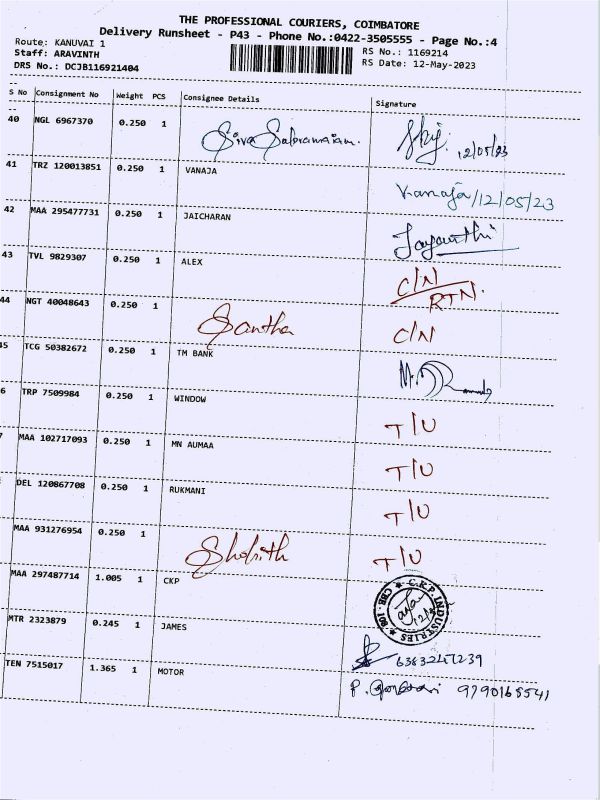 THE PROFESSIONAL COURIERS, COIMBATORE
Delivery Runsheet - P43 - Phone No.:0422-3505555 - Page No.:4
Route: KANUVAI 1
RS No.: 1169214
Staff: ARAVINTH
RS Date: 12-May-2023
DRS No.: DCJB116921404
S No Consignment No Weight PCS Consignee Details Signature
40 NGL 6967370 0.250 1 Siva Subramaniam. 12/05/23
41 TRZ 120013851 0.250 1 VANAJA Vanaja/12/05/23
42 MAA 295477731 0.250 1 JAICHARAN Jayanthi
43 TVL 9829307 0.250 1 ALEX C/N RTN.
44 NGT 40048643 0.250 1 Santha C/N
45 TCG 50382672 0.250 1 TM BANK
6 TRP 7509984 0.250 1 WINDOW T/U
7 MAA 102717093 0.250 1 MN AUMAA T/U
DEL 120867708 0.250 1 RUKMANI T/U
MAA 931276954 0.250 1 Shobith T/U
MAA 297487714 1.005 1 CKP ★ C.K.P INDUSTRIES ★ CBE-108
MTR 2323879 0.245 1 JAMES
TEN 7515017 1.365 1 MOTOR P. 9790165541